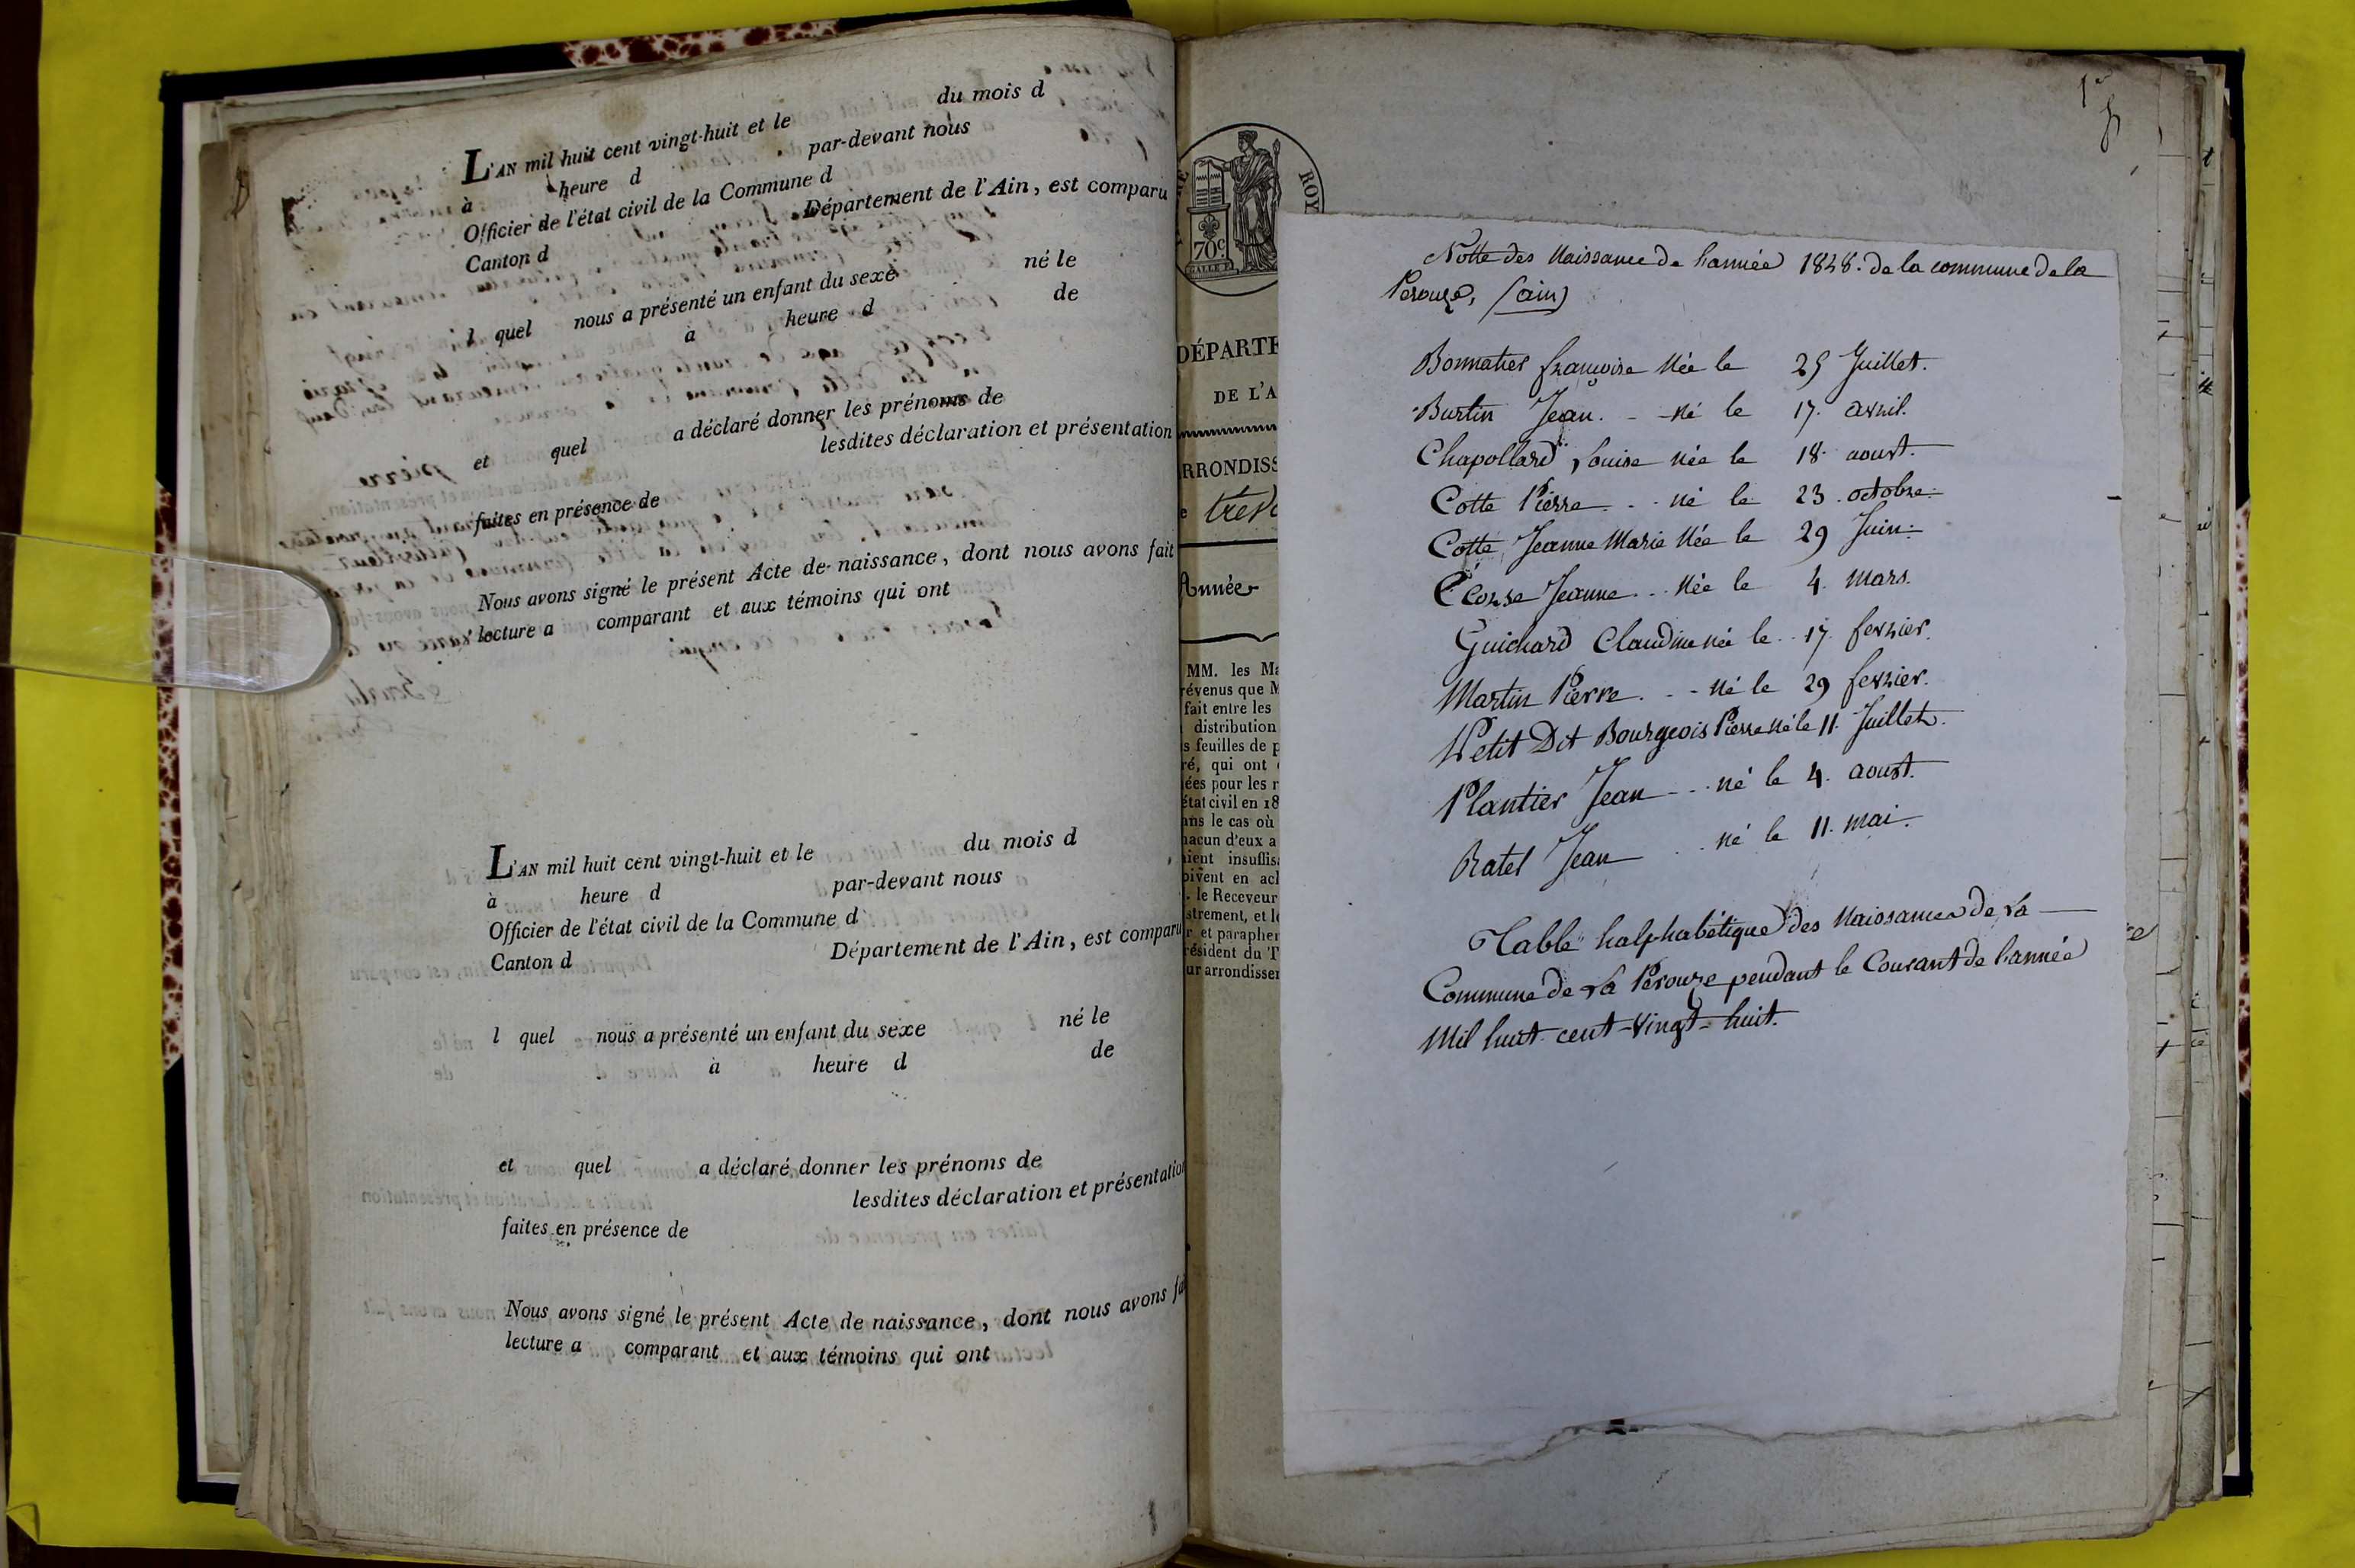 L'AN mil huit cent vingt-huit et le du mois d
à heure d par-devant nous
Officier de l'état civil de la Commune d
Canton d Département de l'Ain, est comparu
l quel nous a présenté un enfant du sexe né le
à heure d de
et quel a déclaré donner les prénoms de
lesdites déclaration et présentation
faites en présence de
Nous avons signé le présent Acte de naissance, dont nous avons fait
lecture a comparant et aux témoins qui ont
L'AN mil huit cent vingt-huit et le du mois d
à heure d par-devant nous
Officier de l'état civil de la Commune d
Canton d Département de l'Ain, est comparu
l quel nous a présenté un enfant du sexe né le
à heure d de
et quel a déclaré donner les prénoms de
lesdites déclaration et présentation
faites en présence de
Nous avons signé le présent Acte de naissance, dont nous avons fai
lecture a comparant et aux témoins qui ont
ROY
70c.
DÉPARTE
DE L'A
RRONDISS
Année
MM. les Ma
révenus que M
fait entre les
distribution
s feuilles de p
ré, qui ont
ées pour les r
état civil en 18
ans le cas où
hacun d'eux a
aient insuffisa
oivent en ach
. le Receveur
strement, et le
r et parapher
résident du T
ur arrondisser
Notte des Naissance de hannée 1828. de la commune de la
Perouze, (ain)
Bonnatier françoise Née le 25 Juillet.
Burtin Jean. - - Né le 17. avril.
Chapollard Louise née le 18. aoust.
Cotte Pierre - .. né le 23. octobre.
Cotte Jeanne Marie Née le 29 Juin.
Ecorse Jeanne... Née le 4. mars.
Guichard Claudine née le .. 17. fevrier.
Martin Pierre. - - Né le 29 fevrier.
Petit Dit Bourgeois Pierre né le 11. Juillet.
Plantier Jean - .. né le 4. aoust.
Ratel Jean .. né le 11. mai.
Table halphabétique des Naissances de La
Commune de La Perouze pendant le Courant de l'année
Mil huit-cent-vingt-huit.